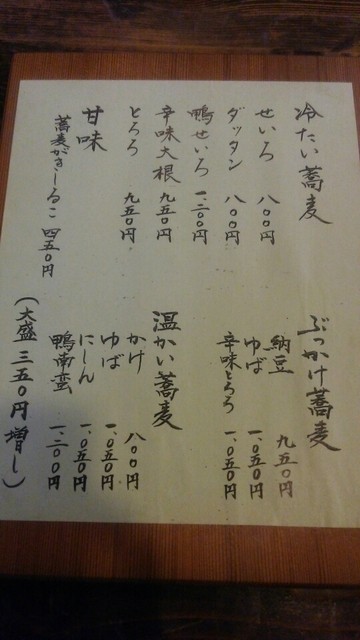 冷たい蕎麦
せいろ 八〇〇円
ダッタン 八〇〇円
鴨せいろ 一、二〇〇円
辛味大根 九五〇円
とろろ 九五〇円
甘味
蕎麦がきしるこ 四五〇円
ぶっかけ蕎麦
納豆 九五〇円
ゆば 一、〇五〇円
辛味とろろ 一、〇五〇円
温かい蕎麦
かけ 八〇〇円
ゆば 一、〇五〇円
にしん 一、〇五〇円
鴨南蛮 一、二〇〇円
(大盛 三五〇円増し)